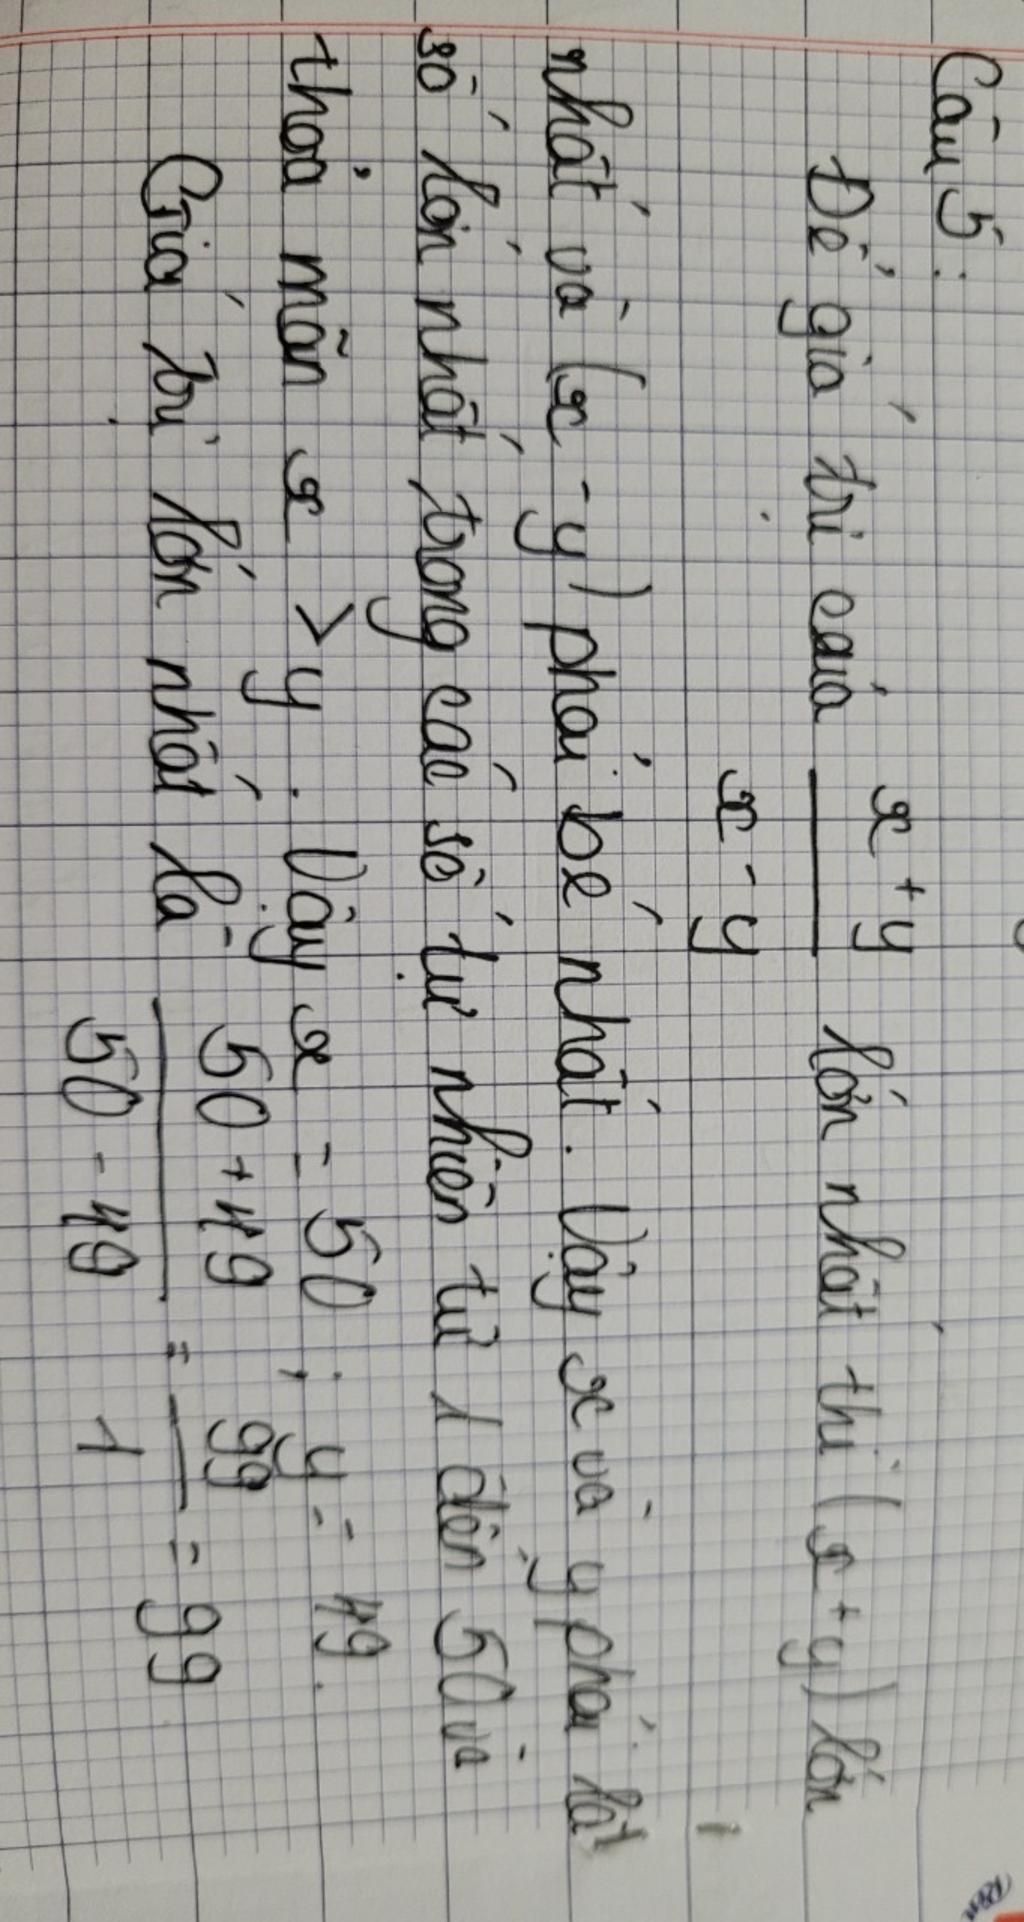 Câu 5:
Để giá trị của x + y / x - y lớn nhất thì (x + y) lớn
nhất và (x - y) phải bé nhất. Vậy x và y phải là
số lớn nhất trong các số tự nhiên từ 1 đến 50 và
thoả mãn x > y. Vậy x = 50; y = 49.
Giá trị lớn nhất là 50 + 49 / 50 - 49 = 99 / 1 = 99